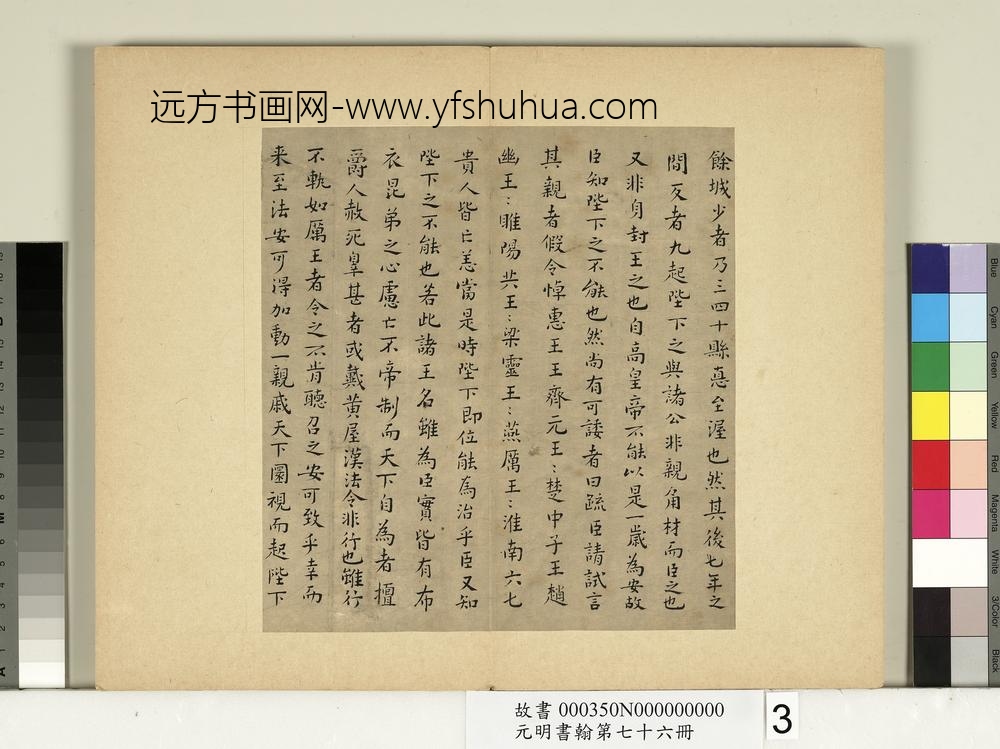 远方书画网-www.yfshuhua.com
餘城少者乃三四十縣悳至渥也然其後七年之
間反者九起陛下之與諸公非親角材而臣之也
又非身封王之也自高皇帝不能以是一歲為安故
臣知陛下之不能也然尚有可諉者曰疏臣請試言
其親者假令悼惠王王齊元王:楚中子王趙
幽王:睢陽共王:梁靈王:燕厲王:淮南六七
貴人皆亡恙當是時陛下即位能為治乎臣又知
陛下之不能也若此諸王名雖為臣實皆有布
衣昆弟之心慮亡不帝制而天下自為者擅
爵人赦死辠甚者或戴黃屋漢法令非行也雖行
不軌如厲王者令之不肯聽召之安可致乎幸而
来至法安可得加動一親戚天下圜視而起陛下
Blue
Cyan
Green
Yellow
Red
Magenta
White
3/Color
Black
故書 000350N000000000
元明書翰第七十六冊
3